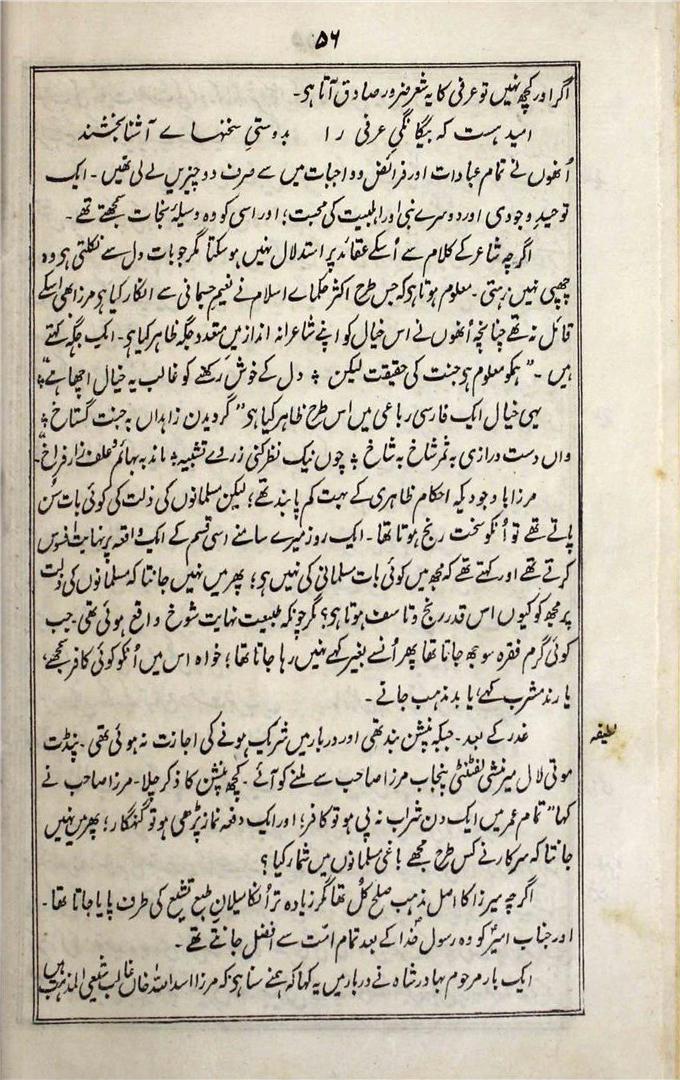 ۵۶
اگر اور کچھ نہیں تو عرفی کا یہ شعر ضرور صادق آتا ہی۔
امید ہست کہ بیگانگیِ عرفی را بدوستیِ سخنہاے آشنا بخشند
اُنھوں نے تمام عبادات اور فرائض و واجبات میں سے صرف دو چیزیں لے لی تھیں۔ ایک
توحیدِ وجودی اور دوسرے نبی اور اہلبیت کی محبت؛ اور اسی کو وہ وسیلۂ نجات سمجھتے تھے۔
اگرچہ شاعر کے کلام سے اُسکے عقائد پر استدلال نہیں ہو سکتا مگر جو بات دل سے نکلتی ہی وہ
چھپی نہیں رہتی۔ معلوم ہوتا ہو کہ جس طرح اکثر حکماے اسلام نے نعیمِ جسمانی سے انکار کیا ہو مرزا بھی اسکے
قائل نہ تھے چنانچہ اُنھوں نے اس خیال کو اپنے شاعرانہ انداز میں متعدد جگہ ظاہر کیا ہو۔ ایک جگہ کہتے
ہیں۔ "ہمکو معلوم ہو جنت کی حقیقت لیکن ؛ دل کے خوش رکھنے کو غالب یہ خیال اچھا ہے" ؛
یہی خیال ایک فارسی رباعی میں اس طرح ظاہر کیا ہو "گرویدن زاہداں بہ جنت گستاخ ؛
واں دست درازی بہ ثمر شاخ بہ شاخ ؛ چوں نیک نظر کنی ز روے تشبیہ ؛ ماند بہ بہائم و علف زار فراخ"۔
مرزا با وجودیکہ احکام ظاہری کے بہت کم پابند تھے؛ لیکن مسلمانوں کی ذلت کی کوئی بات سُن
پاتے تھے تو اُنکو سخت رنج ہوتا تھا۔ ایک روز میرے سامنے اسی قسم کے ایک واقعہ پر نہایت افسوس
کرتے تھے اور کہتے تھے کہ مجھ میں کوئی بات مسلمانی کی نہیں ہی؛ پھر میں نہیں جانتا کہ مسلمانوں کی ذلت
پر مجھ کو کیوں اس قدر رنج و تاسف ہوتا ہو؟ مگر چونکہ طبیعت نہایت شوخ واقع ہوئی تھی۔ جب
کوئی گرم فقرہ سوجھ جاتا تھا پھر اُنسے بغیر کہے نہیں رہا جاتا تھا؛ خواہ اس میں اُنکو کوئی کافر سمجھے،
یا رند مشرب کہے، یا بد مذہب جانے۔
لطیفہ
غدر کے بعد۔ جبکہ پنشن بند تھی اور دربار میں شریک ہونے کی اجازت نہ ہوئی تھی۔ پنڈت
موتی لال میر منشی لفٹنٹی پنجاب مرزا صاحب سے ملنے کو آئے۔ کچھ پنشن کا ذکر چلا۔ مرزا صاحب نے
کہا "تمام عمر میں ایک دن شراب نہ پی ہو تو کافر؛ اور ایک دفعہ نماز پڑھی ہو تو گنہگار؛ پھر میں نہیں
جانتا کہ سرکار نے کس طرح مجھے باغی مسلمانوں میں شمار کیا؟
اگرچہ میرزا کا اصل مذہب صلحِ کُل تھا مگر زیادہ تر اُنکا میلانِ طبع تشیع کی طرف پایا جاتا تھا۔
اور جناب امیر کو وہ رسولِ خدا کے بعد تمام امت سے افضل جانتے تھے۔
ایک بار مرحوم بہادر شاہ نے دربار میں یہ کہا کہ ہمنے سنا ہو کہ مرزا اسد اللہ خان غالب شیعی المذہب ہیں